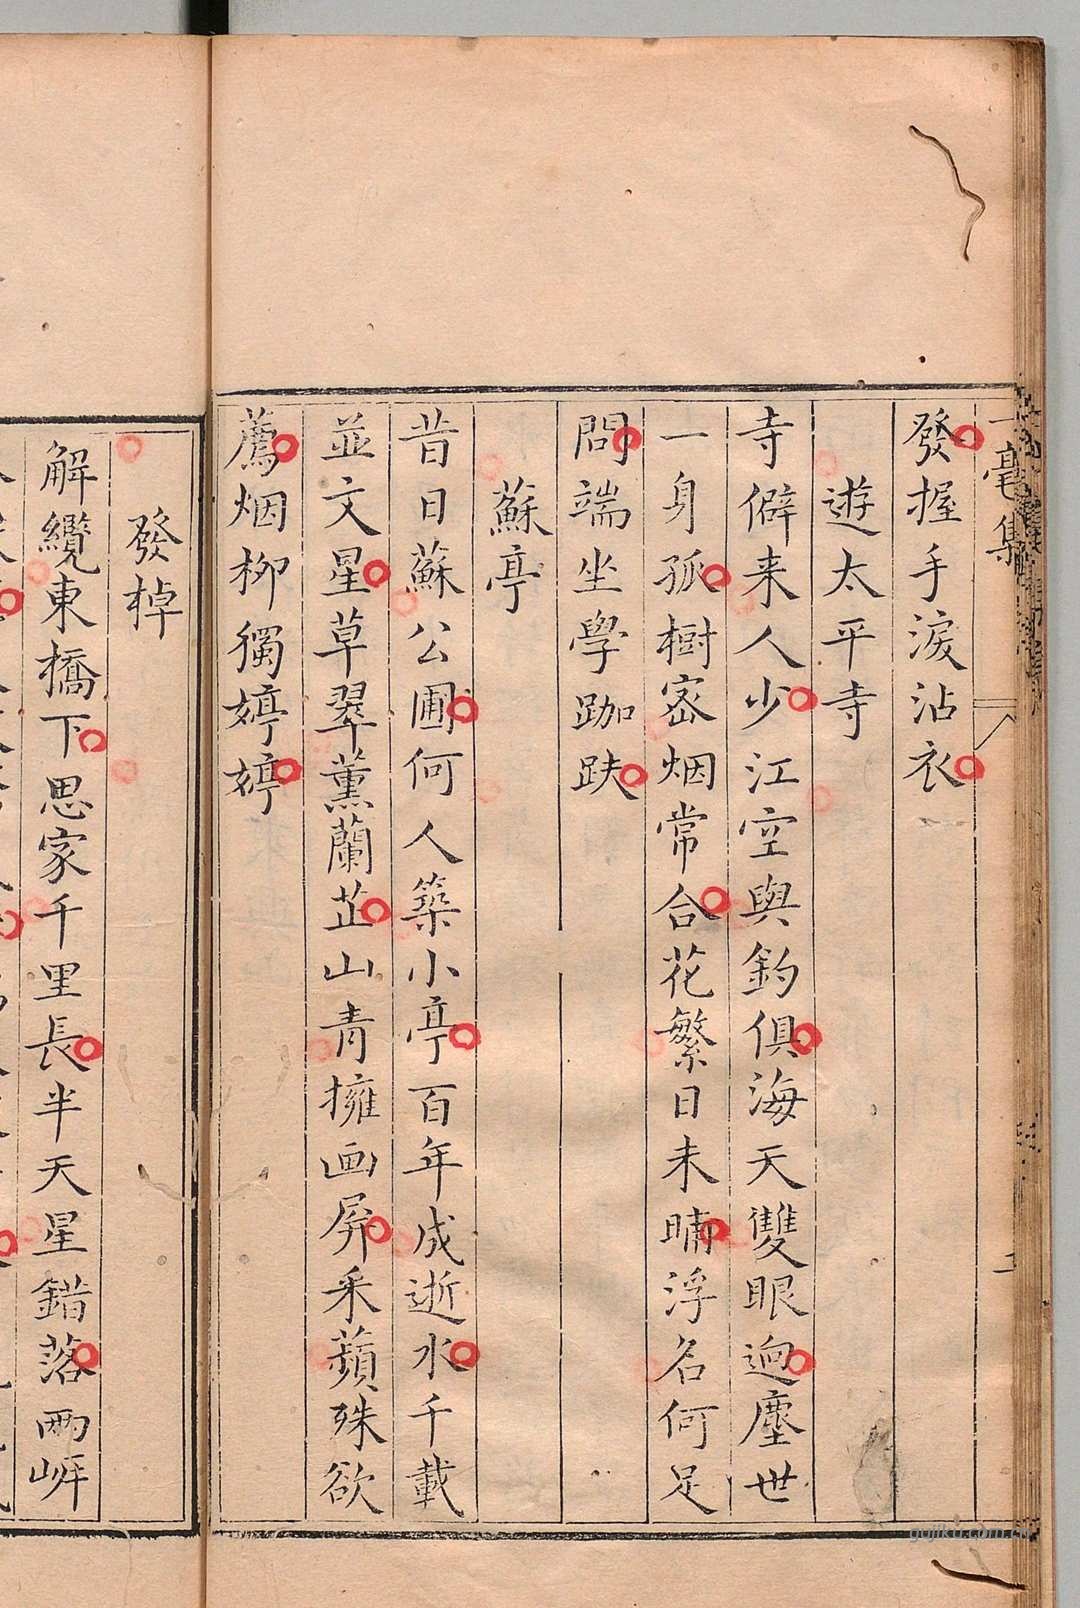 一毫集
二
發握手淚沾衣
遊太平寺
寺僻来人少江空與釣俱海天雙眼迥塵世
一身孤樹密烟常合花繁日未晡浮名何足
問端坐學跏趺
蘇亭
昔日蘇公圃何人築小亭百年成逝水千載
並文星草翠薰蘭芷山青擁画屏采蘋殊欲
薦烟柳獨婷婷
發棹
解纜東橋下思家千里長半天星錯落兩岍
gujiku.com.cn